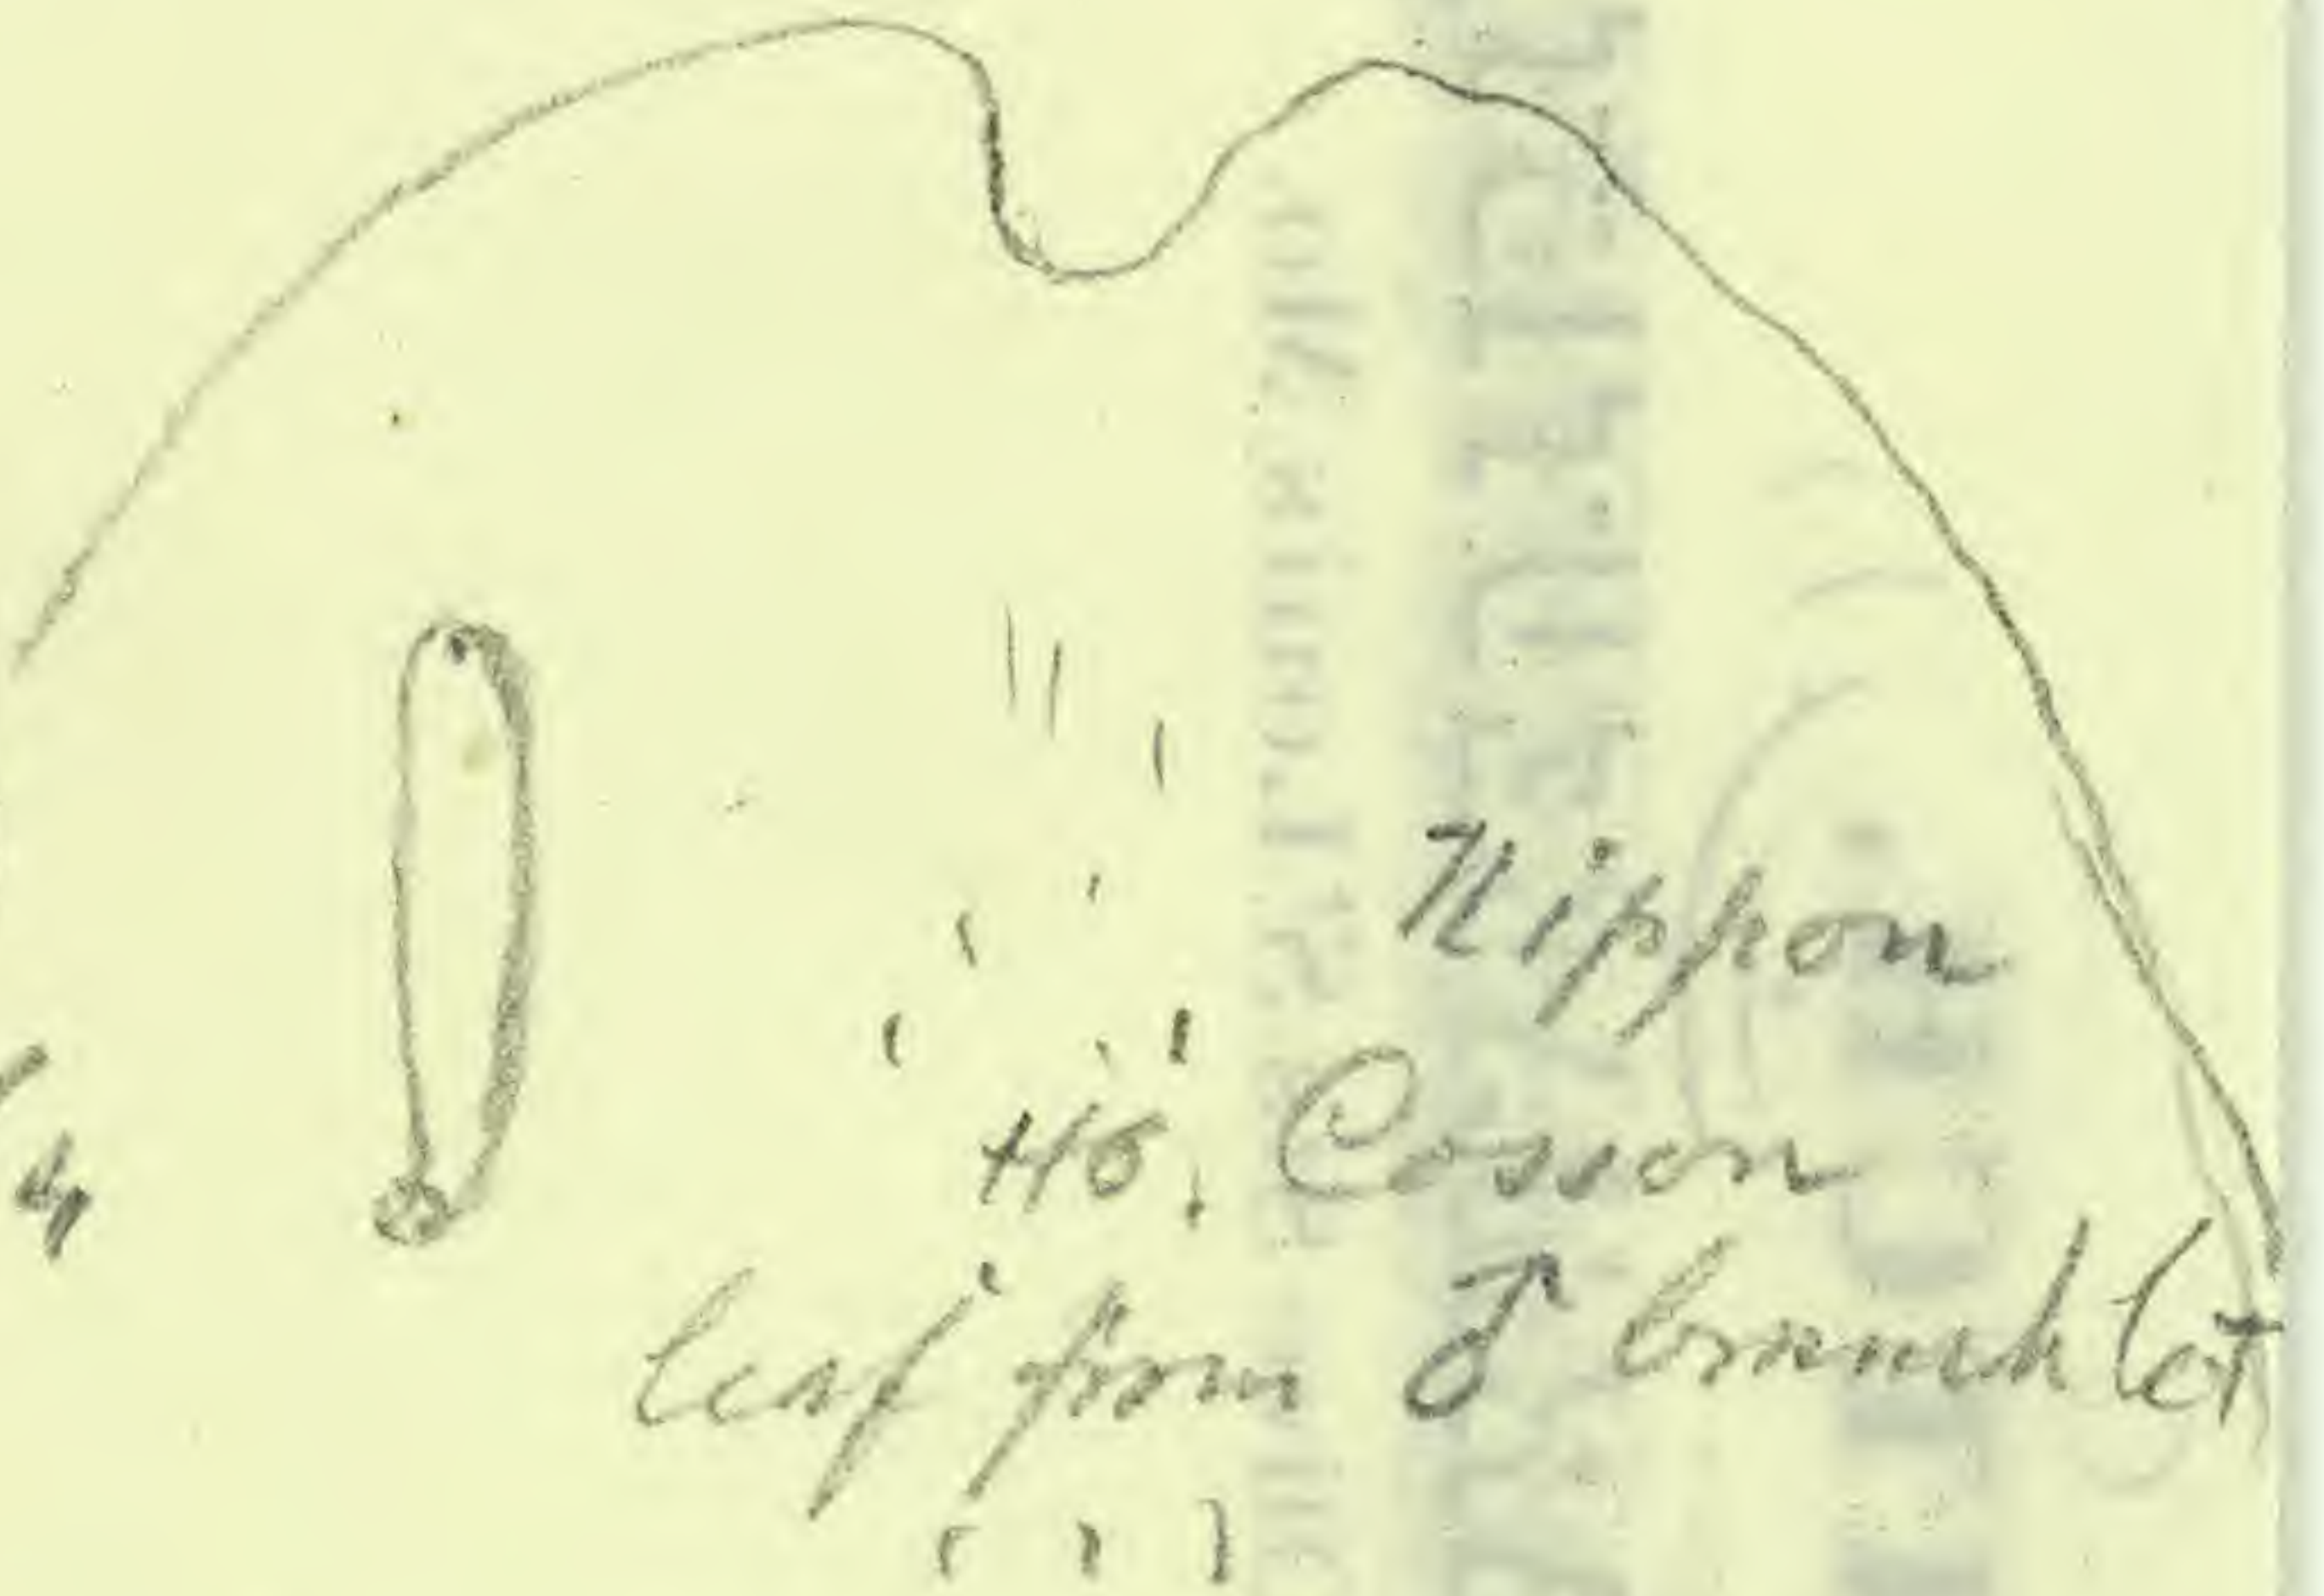 Nippon
Hb. Cosson
leaf from ♂ branchlet